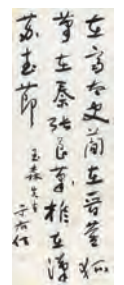 在齊太史簡在晉董狐
筆在秦張良椎在漢
蘇武節
玉森先生
于右任